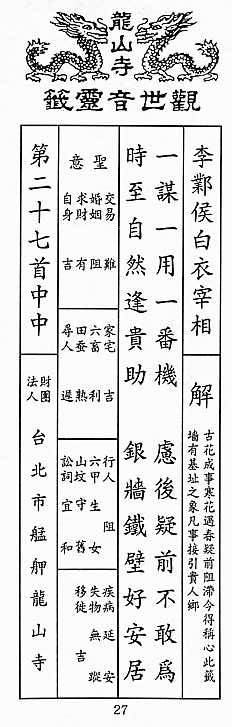 龍山寺
觀世音靈籤
李鄴侯白衣宰相
解
古花成事寒花遇春疑前阻滯今得稱心此籤
墻有基址之象凡事接引貴人鄉
一謀一用一番機 慮後疑前不敢為
時至自然逢貴助 銀牆鐵壁好安居
聖意
交易 難
婚姻 阻
求財 有
自身 吉
家宅 吉
六畜 利
田蚕 熟
尋人 遲
行人 阻
六甲生女
山坟守舊
訟詞宜和
疾病延安
失物無蹤
移徙 吉
第二十七首中中
財團
法人
台北市艋舺龍山寺
27